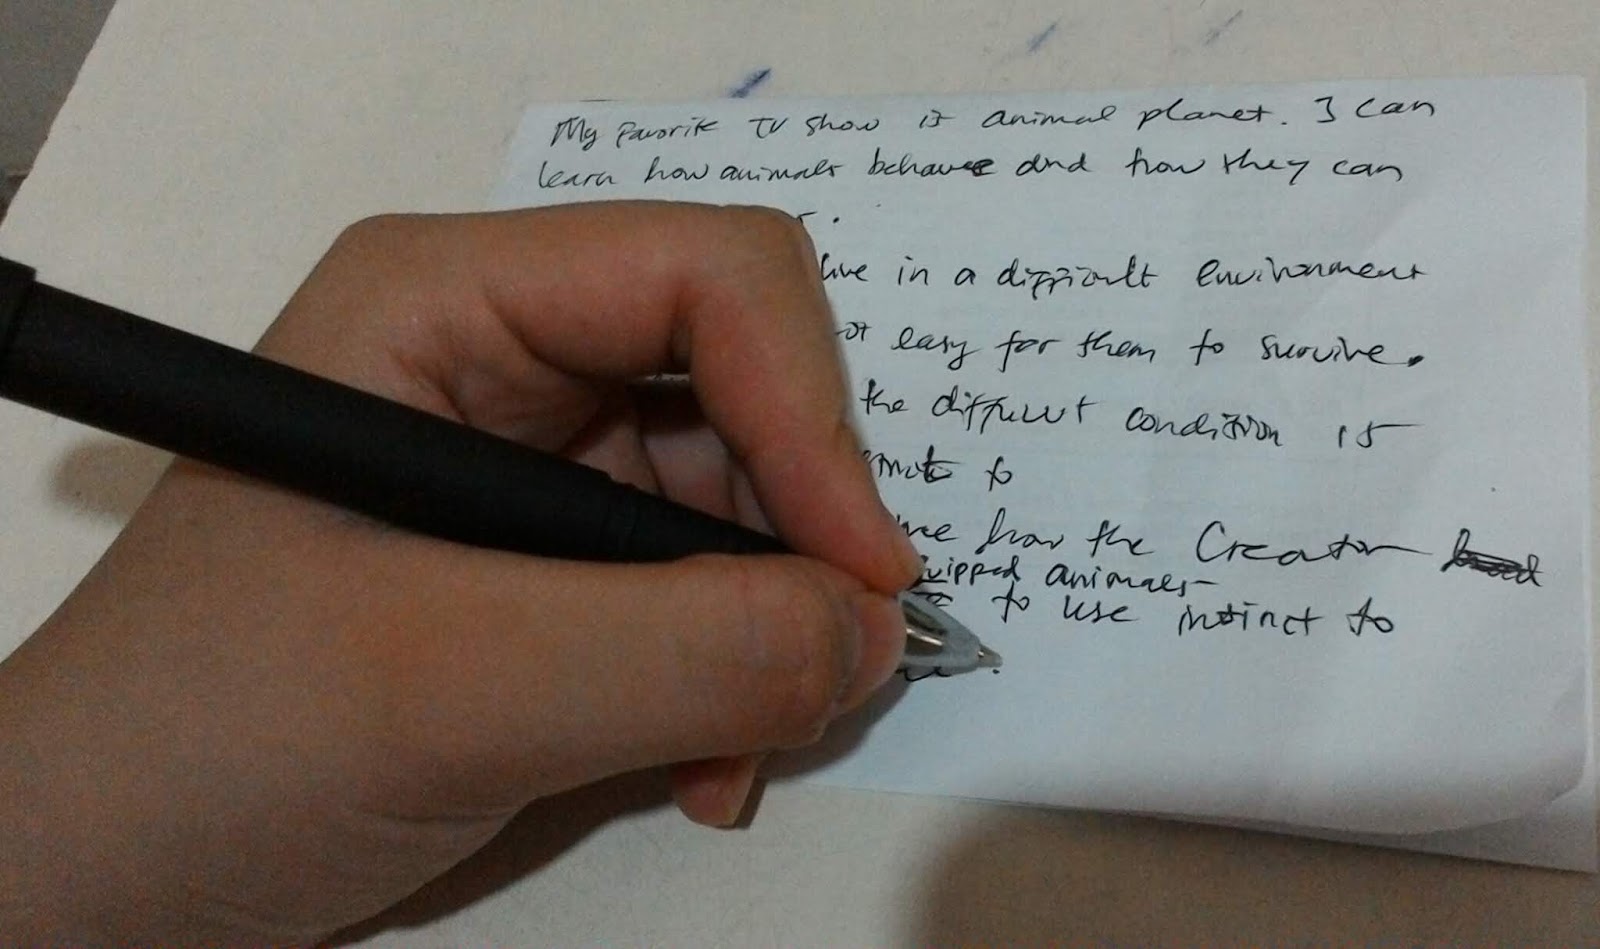 My Favorite TV show is animal planet. I can
learn how animals behave and how they can
live in a difficult environment
easy for them to survive.
the different condition is
to
how the Creator
animals
to use instinct to